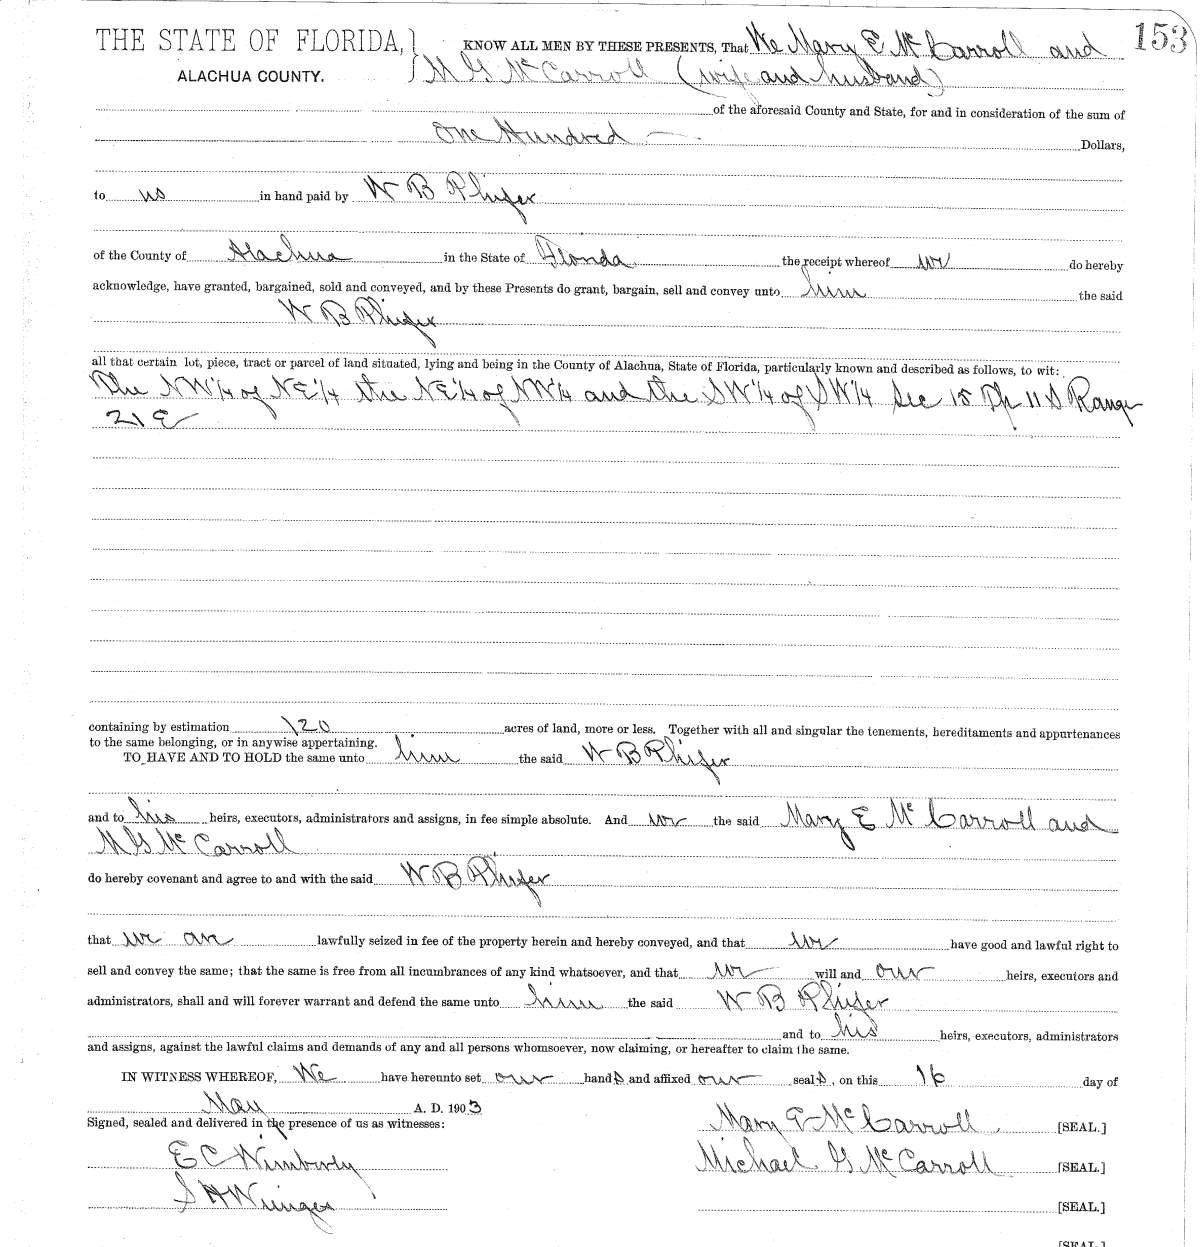 153
THE STATE OF FLORIDA, } KNOW ALL MEN BY THESE PRESENTS, That We Mary E McCarroll and
ALACHUA COUNTY. M G McCarroll (wife and husband)
of the aforesaid County and State, for and in consideration of the sum of
One Hundred — Dollars,
to us in hand paid by W B Phifer
of the County of Alachua in the State of Florida the receipt whereof we do hereby
acknowledge, have granted, bargained, sold and conveyed, and by these Presents do grant, bargain, sell and convey unto him the said
W B Phifer
all that certain lot, piece, tract or parcel of land situated, lying and being in the County of Alachua, State of Florida, particularly known and described as follows, to wit:
The NW1/4 of NE1/4 the NE1/4 of NW1/4 and the SW1/4 of SW1/4 Sec 15 Tp 11 S Range
21 E
containing by estimation 120 acres of land, more or less. Together with all and singular the tenements, hereditaments and appurtenances
to the same belonging, or in anywise appertaining.
TO HAVE AND TO HOLD the same unto him the said W B Phifer
and to his heirs, executors, administrators and assigns, in fee simple absolute. And we the said Mary E McCarroll and
M G McCarroll
do hereby covenant and agree to and with the said W B Phifer
that we are lawfully seized in fee of the property herein and hereby conveyed, and that we have good and lawful right to
sell and convey the same; that the same is free from all incumbrances of any kind whatsoever, and that we will and our heirs, executors and
administrators, shall and will forever warrant and defend the same unto him the said W B Phifer
and to his heirs, executors, administrators
and assigns, against the lawful claims and demands of any and all persons whomsoever, now claiming, or hereafter to claim the same.
IN WITNESS WHEREOF, We have hereunto set our hands and affixed our seals, on this 16 day of
May A. D. 1903
Signed, sealed and delivered in the presence of us as witnesses: Mary E McCarroll [SEAL.]
E C Wimberly Michael G McCarroll [SEAL.]
S H Wienges [SEAL.]
[SEAL.]